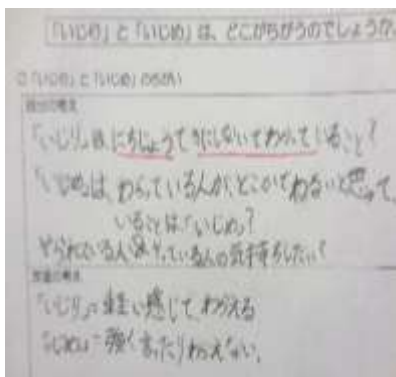 「いじり」と「いじめ」は、どこがちがうのでしょうか。
「いじり」と「いじめ」のちがい
自分の考え
「いじり」はにちじょうてきにしないてわかっていること?
「いじめ」は、わらっている人が、どこかで と思って、
いることは「いじめ」?
やられている人 やっている人の気持ちしだい?
友達の考え
「いじり」=軽い感じてわらえる
「いじめ」=強く言ったりわらえない。